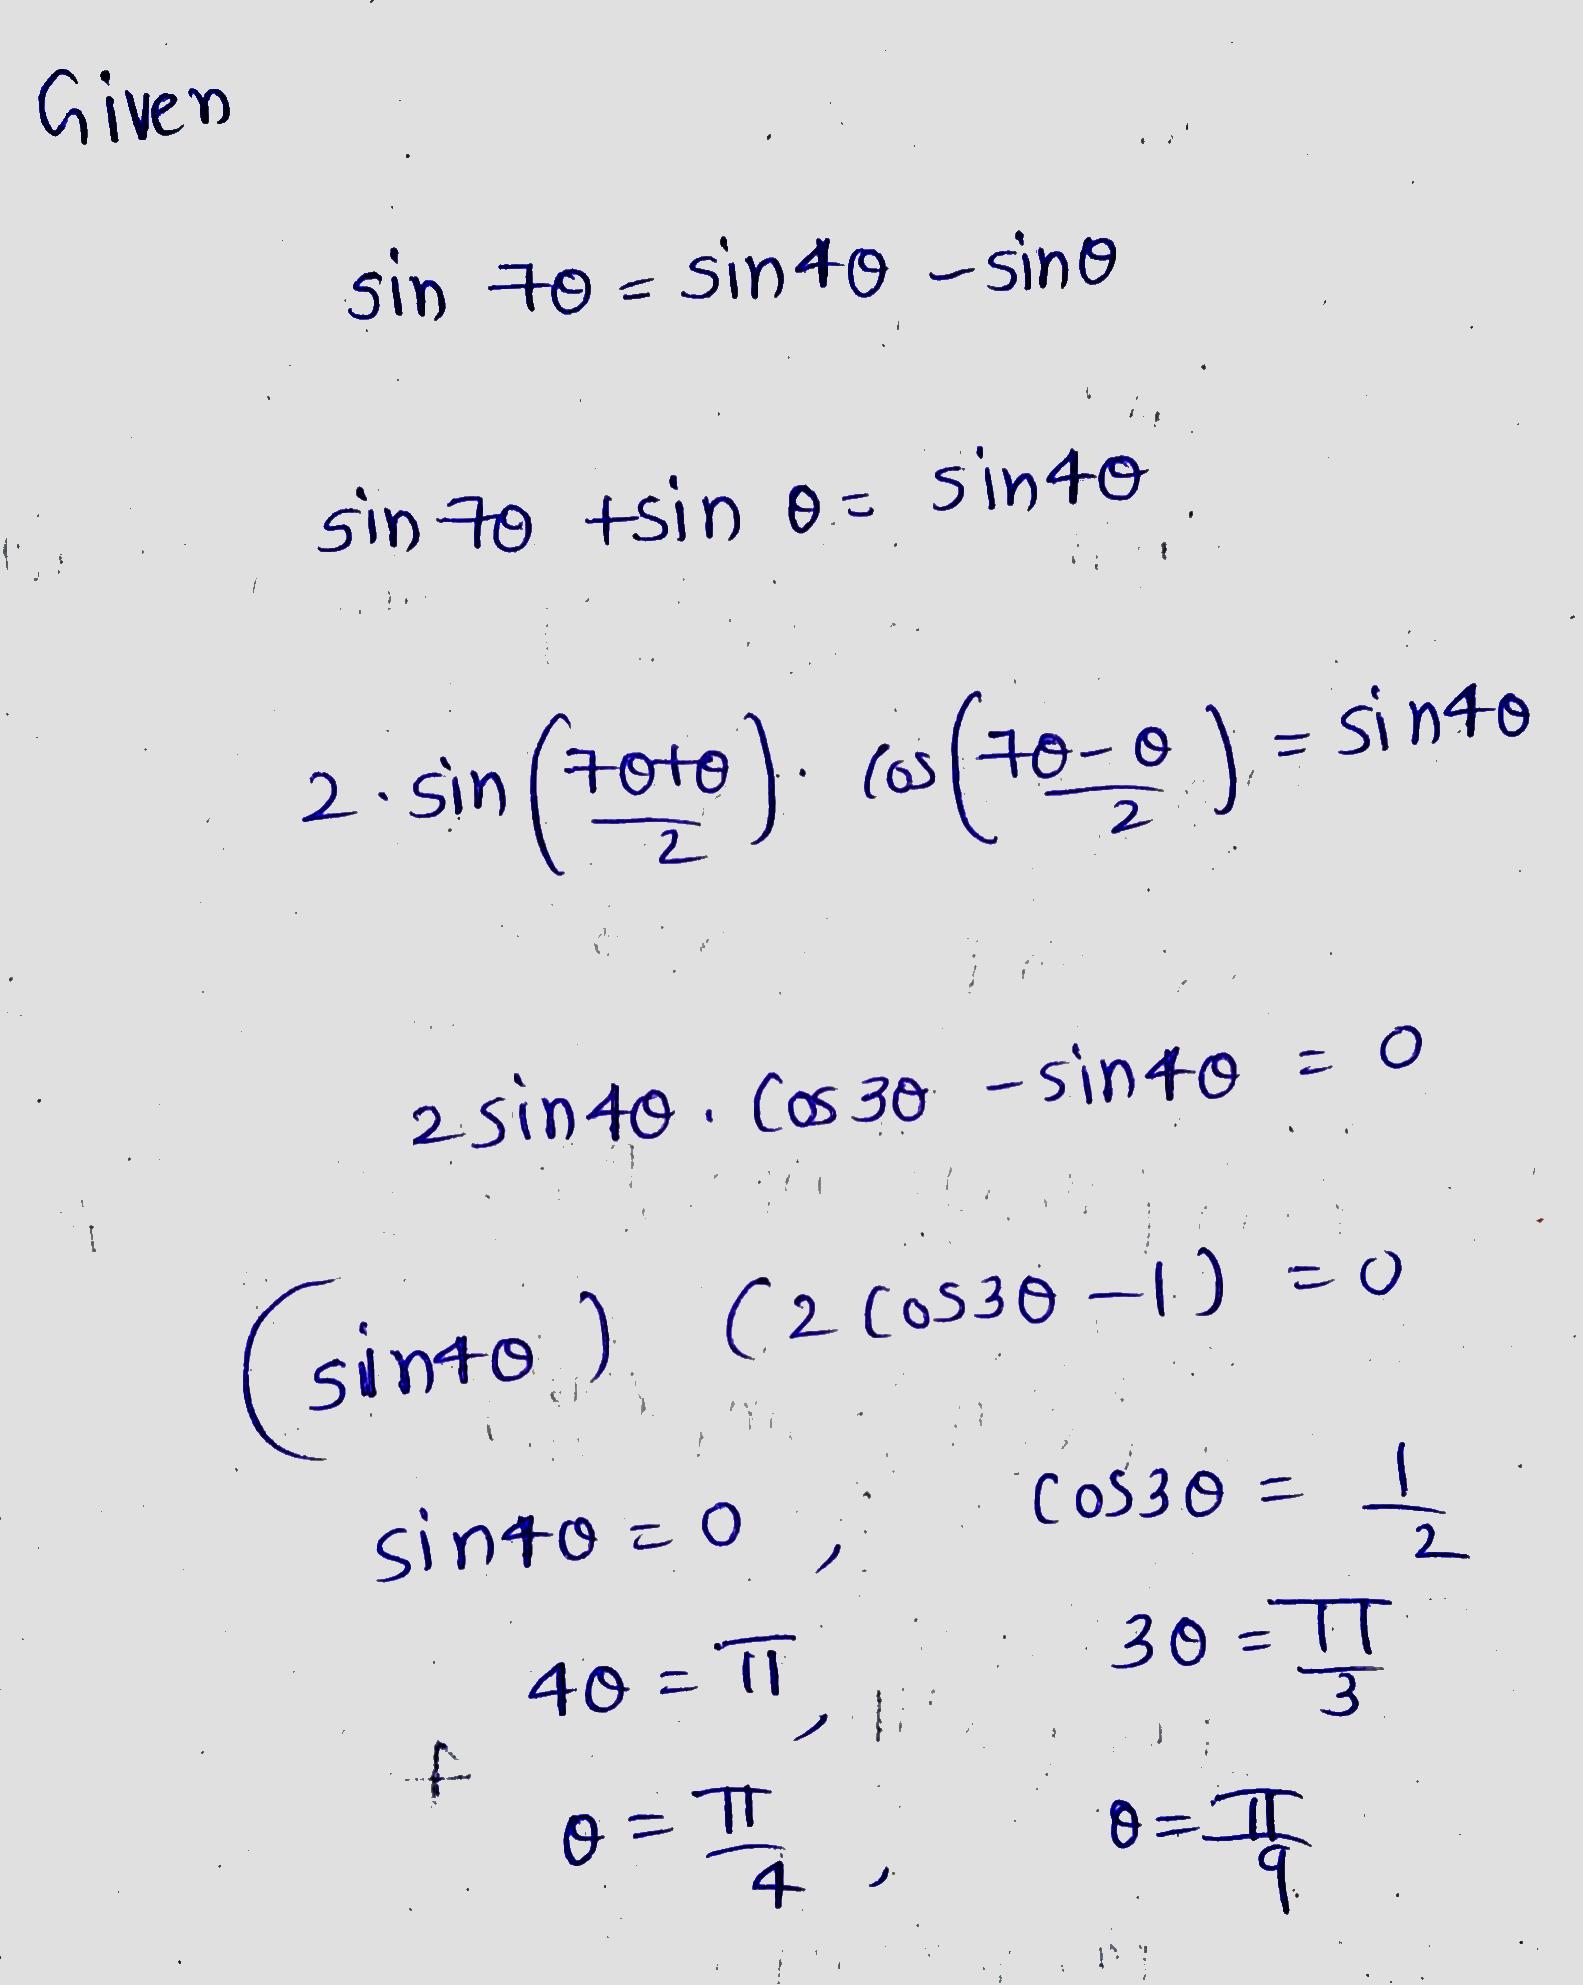 Given
sin 7θ = sin4θ - sinθ
sin 7θ + sin θ = sin4θ
2 · sin (7θ+θ / 2) · cos (7θ-θ / 2) = sin4θ
2 sin4θ . Cos 3θ - sin4θ = 0
(sin4θ) (2 cos3θ - 1) = 0
sin4θ = 0 , cos3θ = 1/2
4θ = π , 3θ = π/3
θ = π/4 , θ = π/9